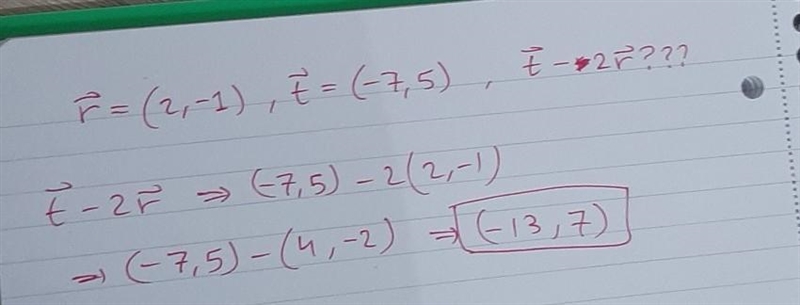 r⃗ = (2,-1) , t⃗ = (-7,5) , t⃗ - 2r⃗ ???
t⃗ - 2r⃗ ⇒ (-7,5) - 2(2,-1)
⇒ (-7,5) - (4,-2) ⇒ (-13,7)